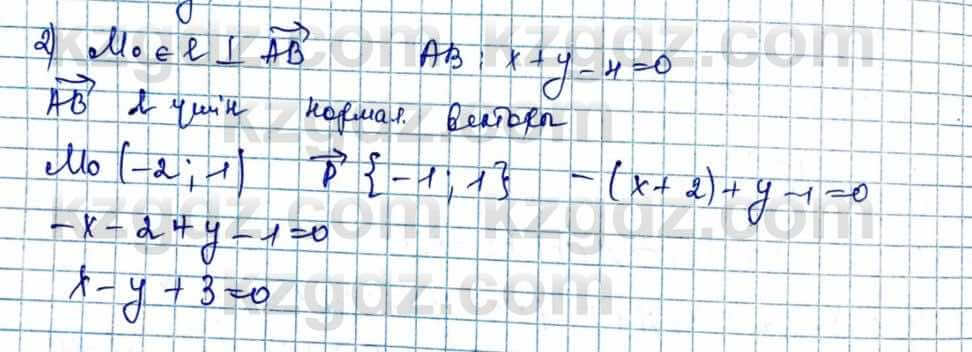 2) M₀ ∈ l ⊥ AB⃗ AB: x + y - 4 = 0
AB⃗ l үшін нормал. векторы
M₀ (-2; 1) p⃗ {-1; 1} - (x + 2) + y - 1 = 0
-x - 2 + y - 1 = 0
x - y + 3 = 0
kzgdz.com